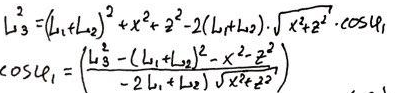 L₃² = (L₁+L₂)² + x² + z² - 2(L₁+L₂)·√(x²+z²)·cosφ₁
cosφ₁ = ((L₃² - (L₁+L₂)² - x² - z²) / (-2L₁+L₂)√(x²+z²))